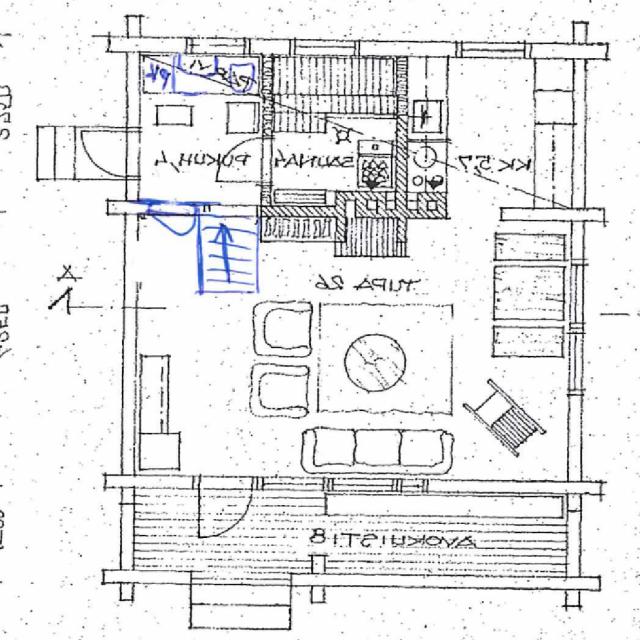 PUKUH. 4
SAUNA 4
KK 5.7
TUPA 26
A
AVOKUISTI 8